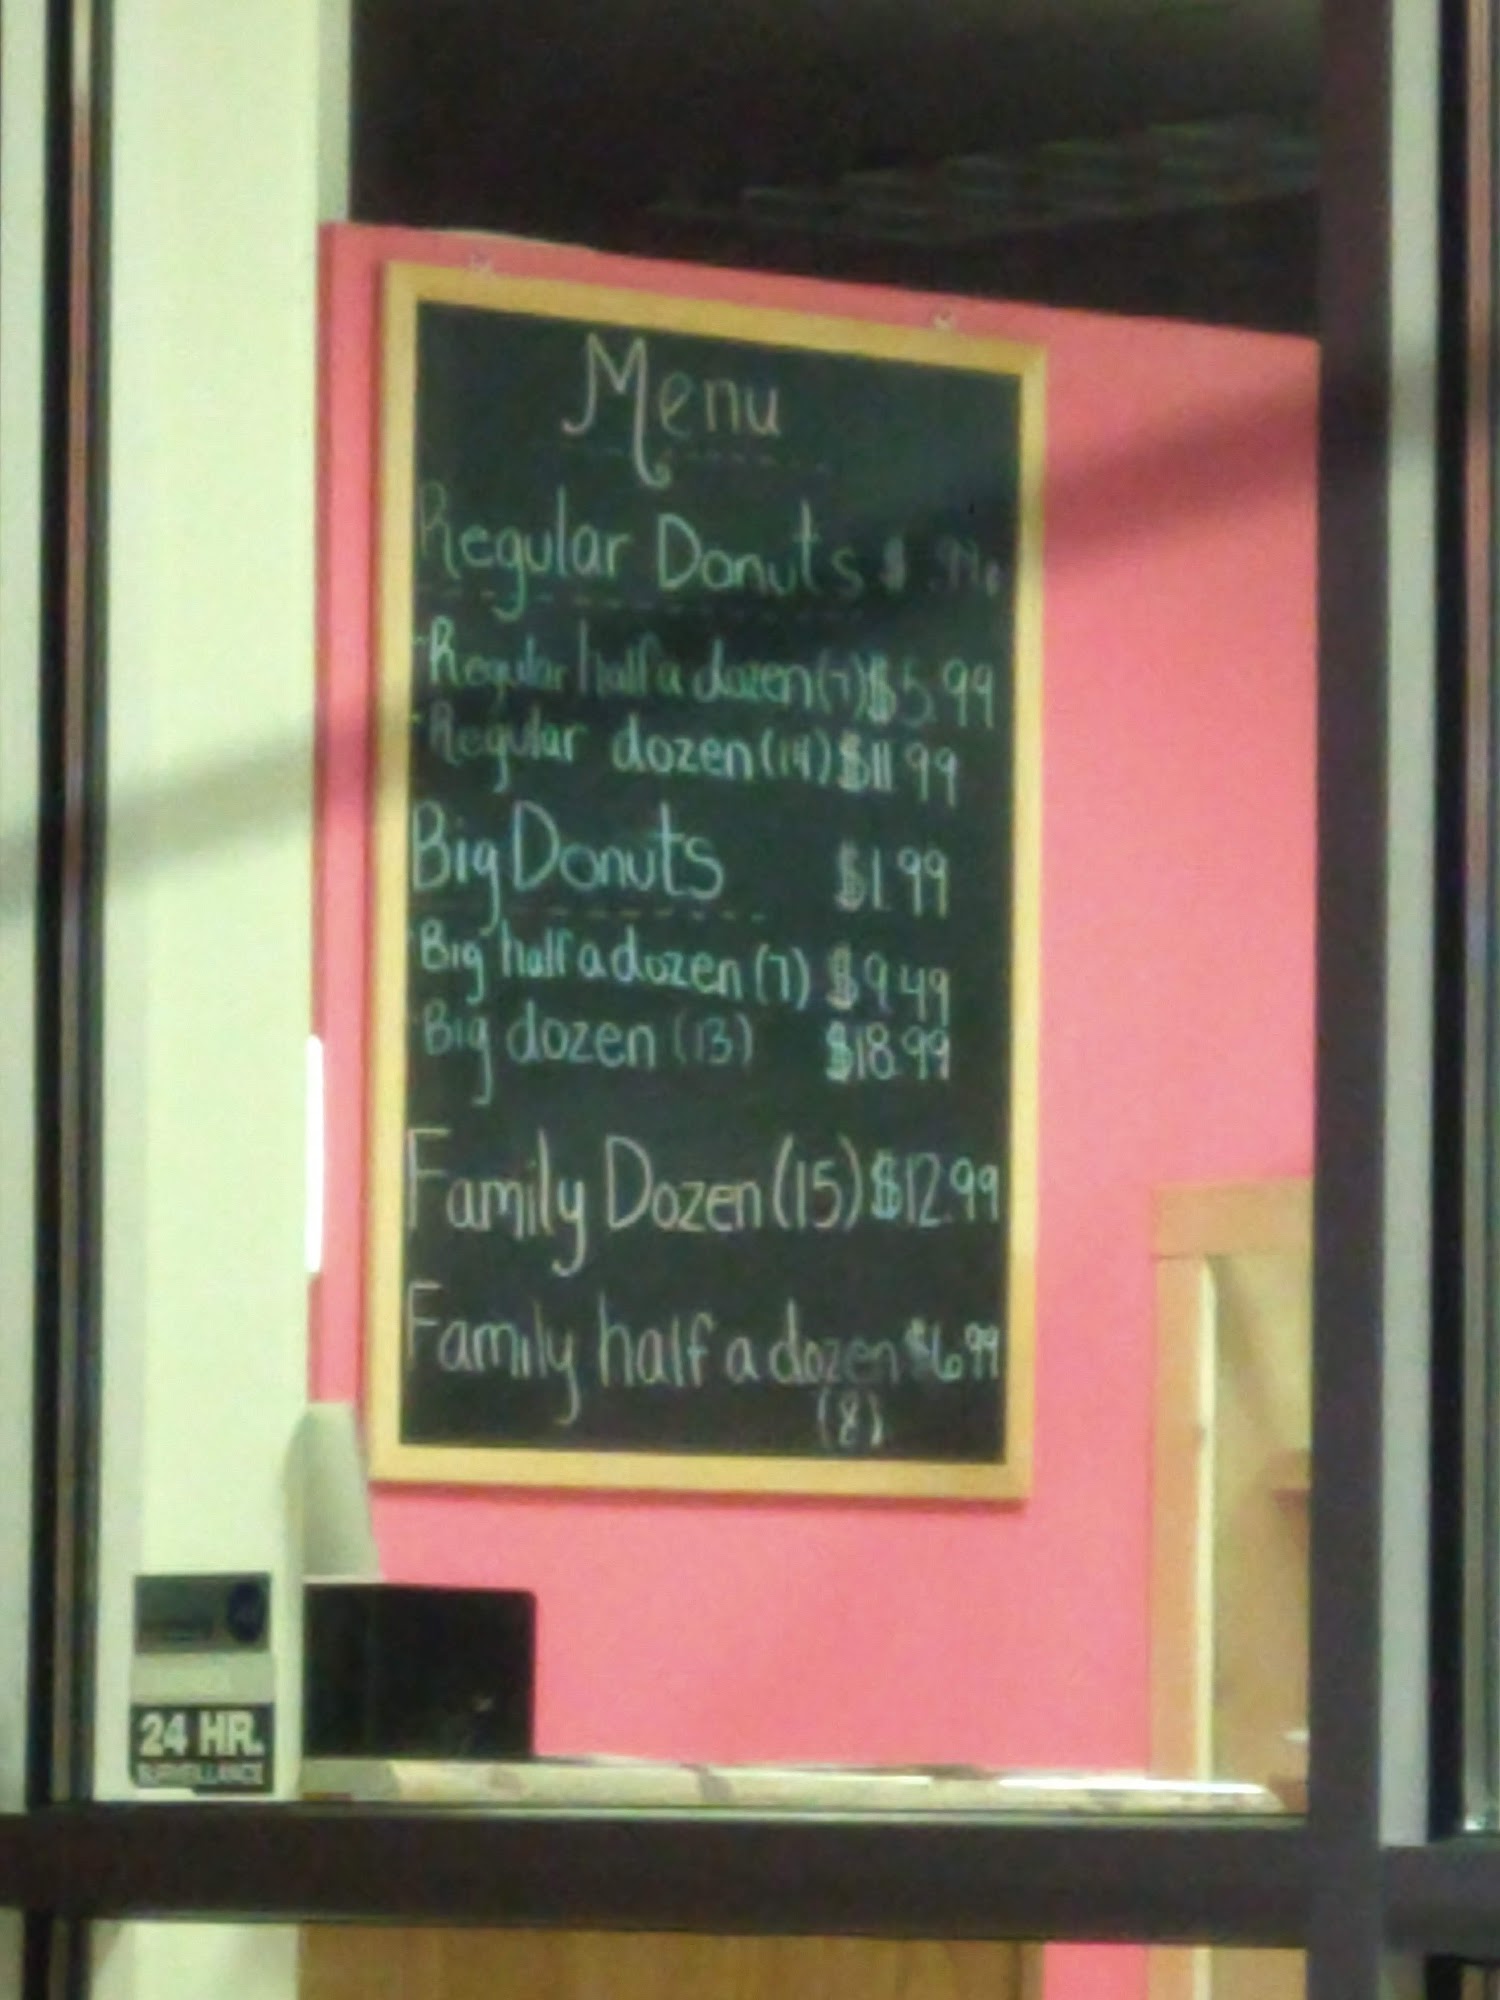 Menu
Regular Donuts $ .99¢
Regular half a dozen (7) $5.99
Regular dozen (14) $11.99
Big Donuts $1.99
Big half a dozen (7) $9.49
Big dozen (13) $18.99
Family Dozen (15) $12.99
Family half a dozen $6.99
(8)
24 HR.
SURVEILLANCE